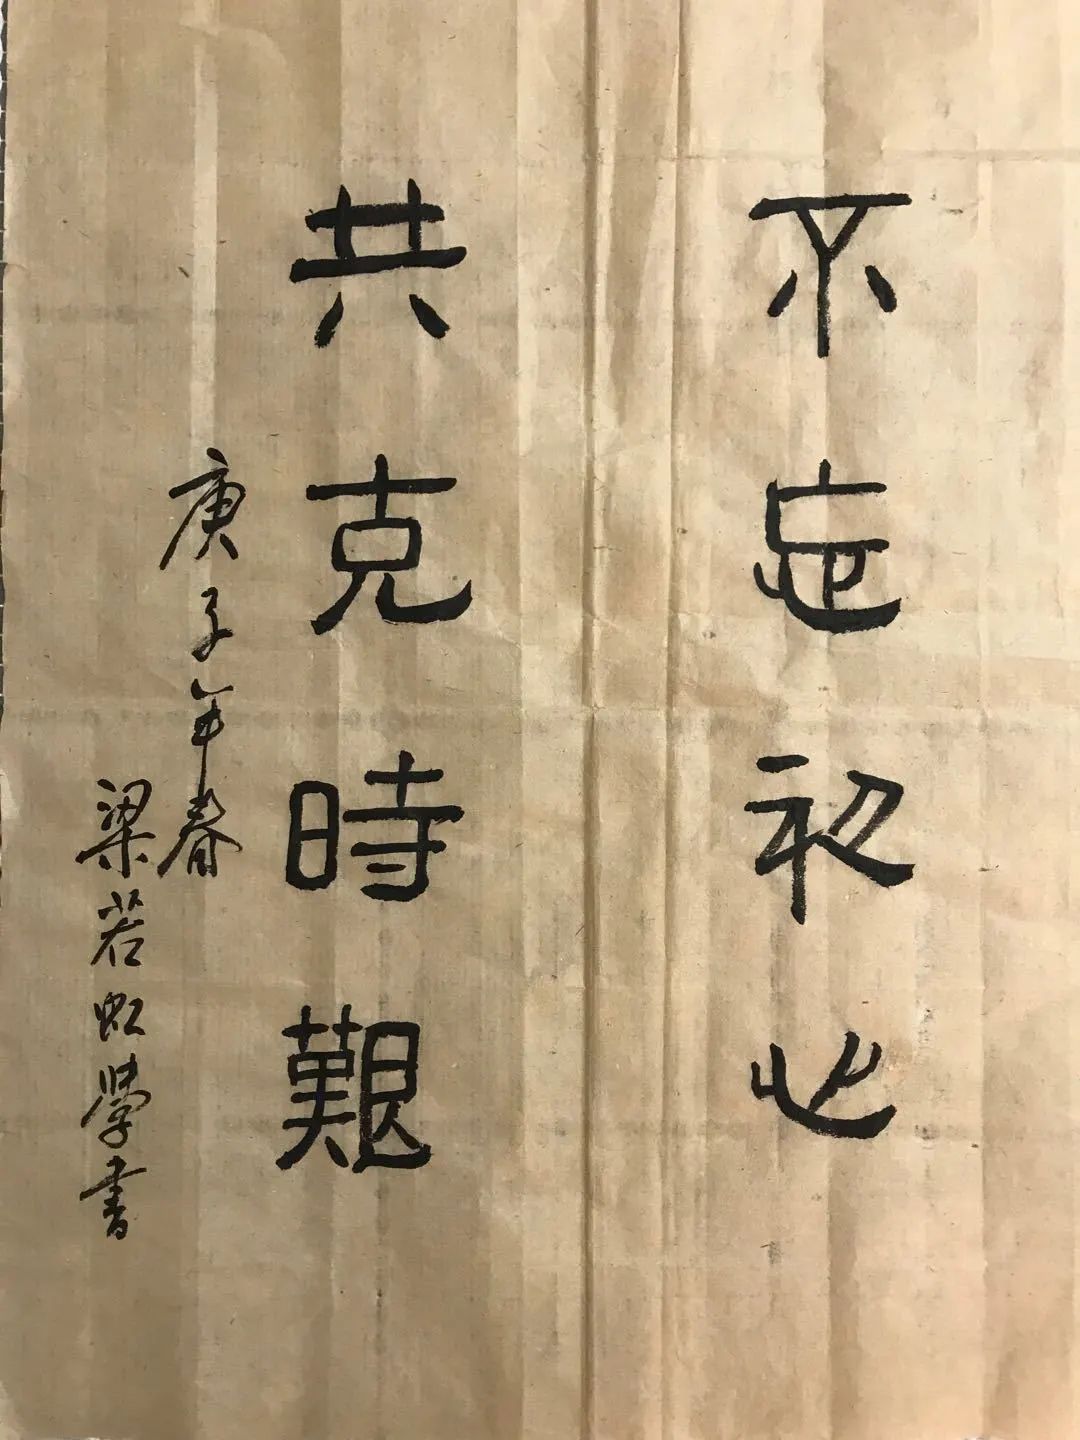 不忘初心
共克時艱
庚子年春
梁若虹學書